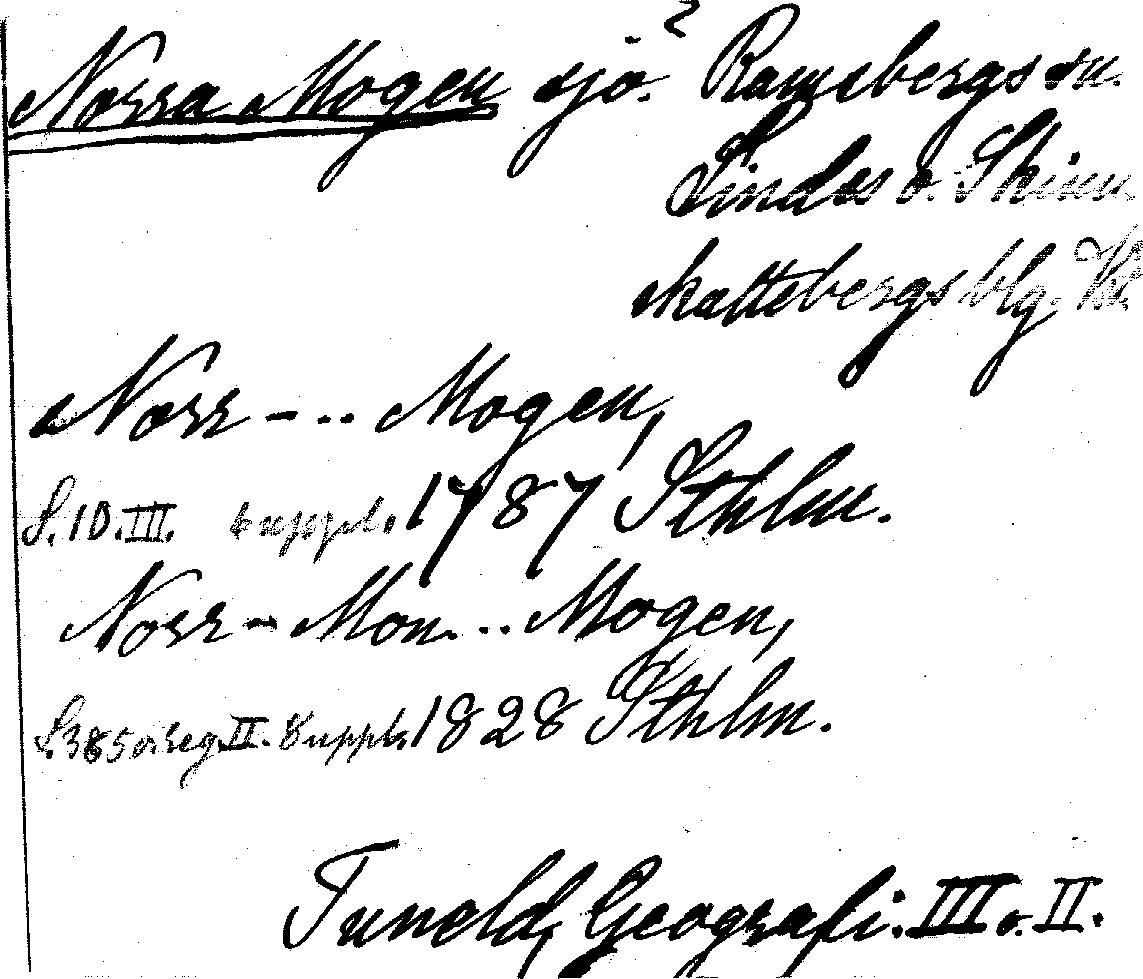 Norra Mogen sjö? Ramsbergs sn.
Lindes o. Skinn-
skattebergs blg. Vst.
Norr - .. Mogen,
S. 10. III. suppl. 1787 Sthlm.
Norr - Mon... Mogen,
S. 385 o. reg. II. suppl. 1828 Sthlm.
Tuneld, Geografi. III o. II.